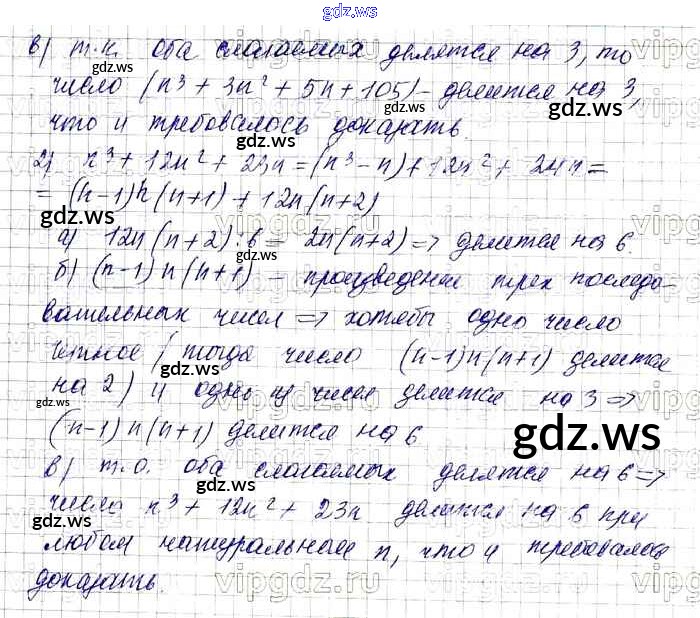 gdz.ws
в) т.к. оба слагаемых делятся на 3, то
число (n³ + 3n² + 5n + 105) - делится на 3,
что и требовалось доказать.
2) n³ + 12n² + 23n = (n³ - n) + 12n² + 24n =
= (n-1)n(n+1) + 12n(n+2)
а) 12n(n+2) : 6 = 2n(n+2) => делится на 6.
б) (n-1)n(n+1) - произведение трех последо-
вательных чисел => хотябы одно число
четное (тогда число (n-1)n(n+1) делится
на 2) и одно из чисел делится на 3 =>
(n-1)n(n+1) делится на 6
в) т.о. оба слагаемых делятся на 6 =>
число n³ + 12n² + 23n делится на 6 при
любом натуральном n, что и требовалось
доказать.